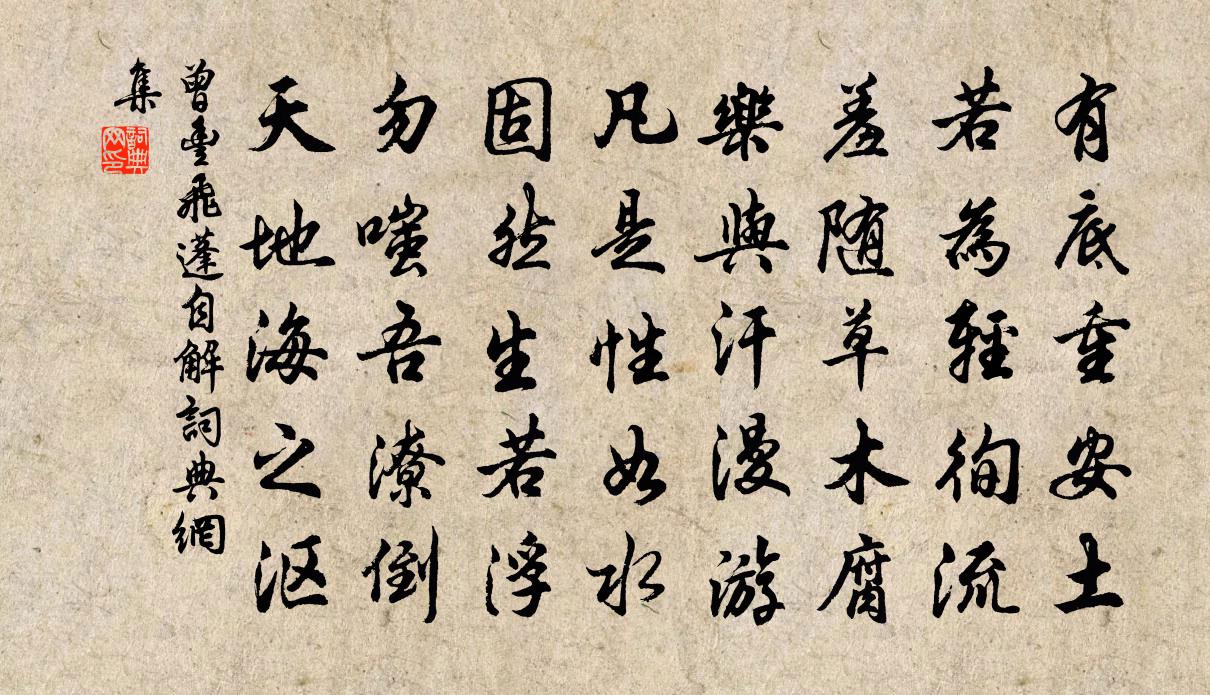 有底重安土
若為輕徇流
羞随草木腐
樂與汗漫游
凡是性如水
固然生若浮
勿嗤吾潦倒
天地海之沤
曾豐飛蓬自解詞典網
集
詞典网印